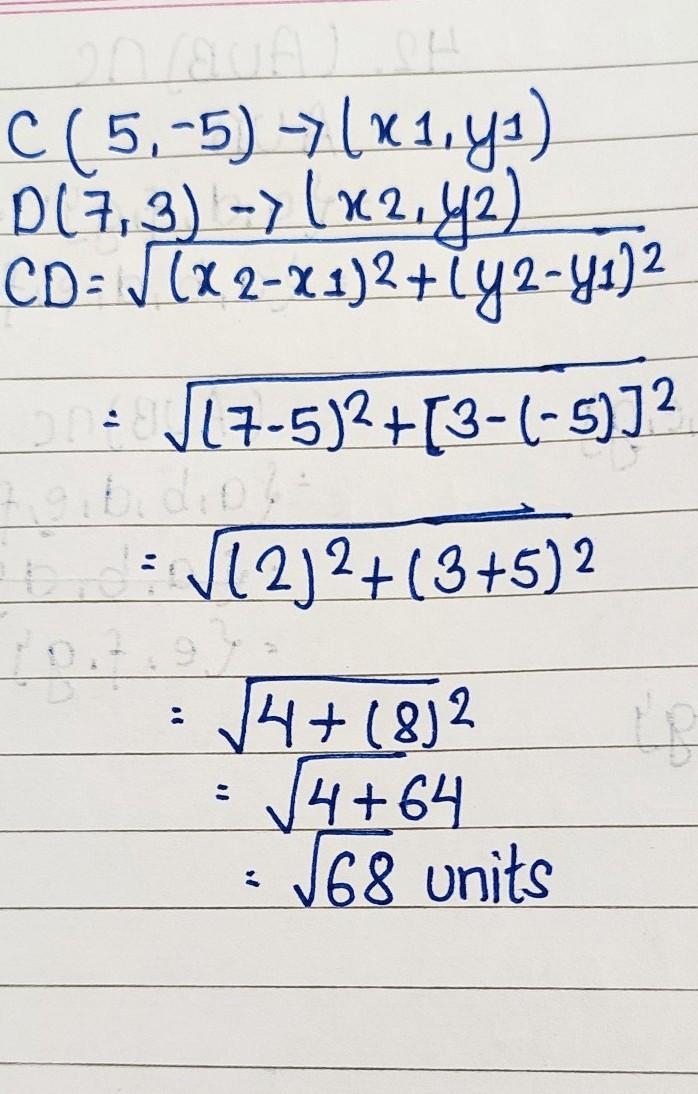 C(5,-5)→(x1,y1)
D(7,3)→(x2,y2)
CD=√(x2-x1)²+(y2-y1)²
=√(7-5)²+[3-(-5)]²
=√(2)²+(3+5)²
=√4+(8)²
=√4+64
=√68 units